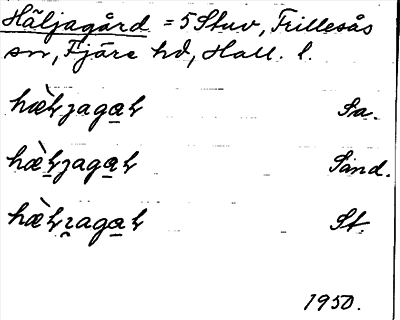 Häljagård = 5 Stuv, Frillesås
sn, Fjäre hd, Hall. l.
hæ̀ꞎȷaga̲ꞎ Sa.
hæ̀ꞎ̲ȷaga̲ꞎ Sand.
hæ̀ꞎ̲ɿaga̲ꞎ St.
1950.